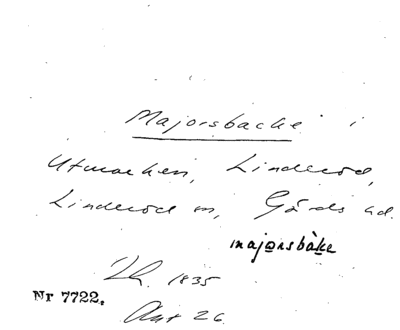 Majorsbacke i
Utmarken, Linderöd,
Linderöd sn, Gärds hd.
majorsbàke
1835
Nr 7722.
26